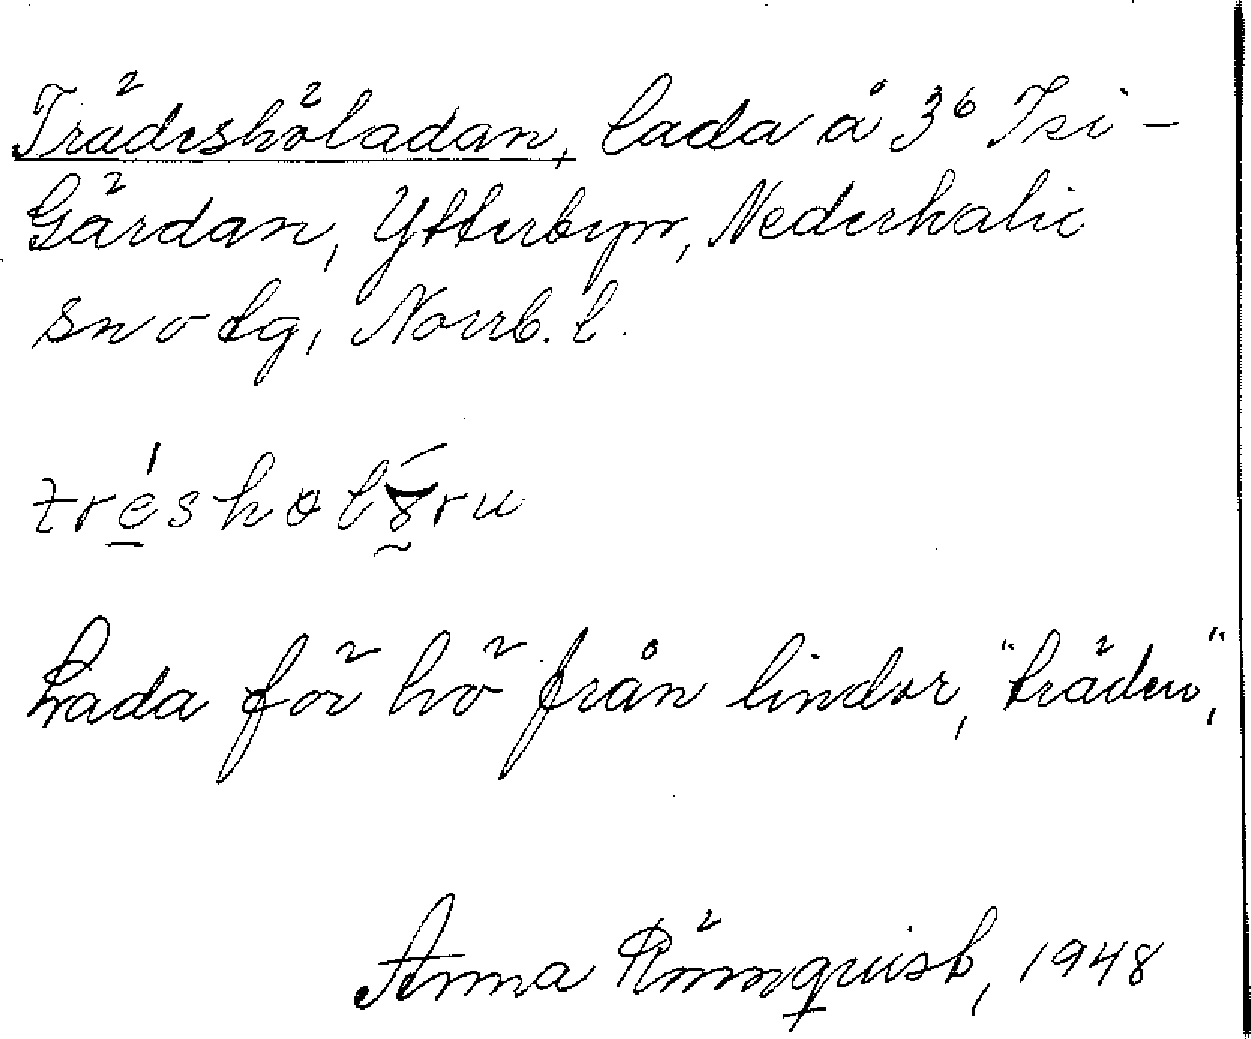 Trädeshöladan, lada å 3⁶ Isi-
Gärdan, Ytterbyn, Nederkalix
sn o tg, Norrb. l.
tréshol
Lada för hö från lindor, "träden",
Anna Rönnquist, 1948